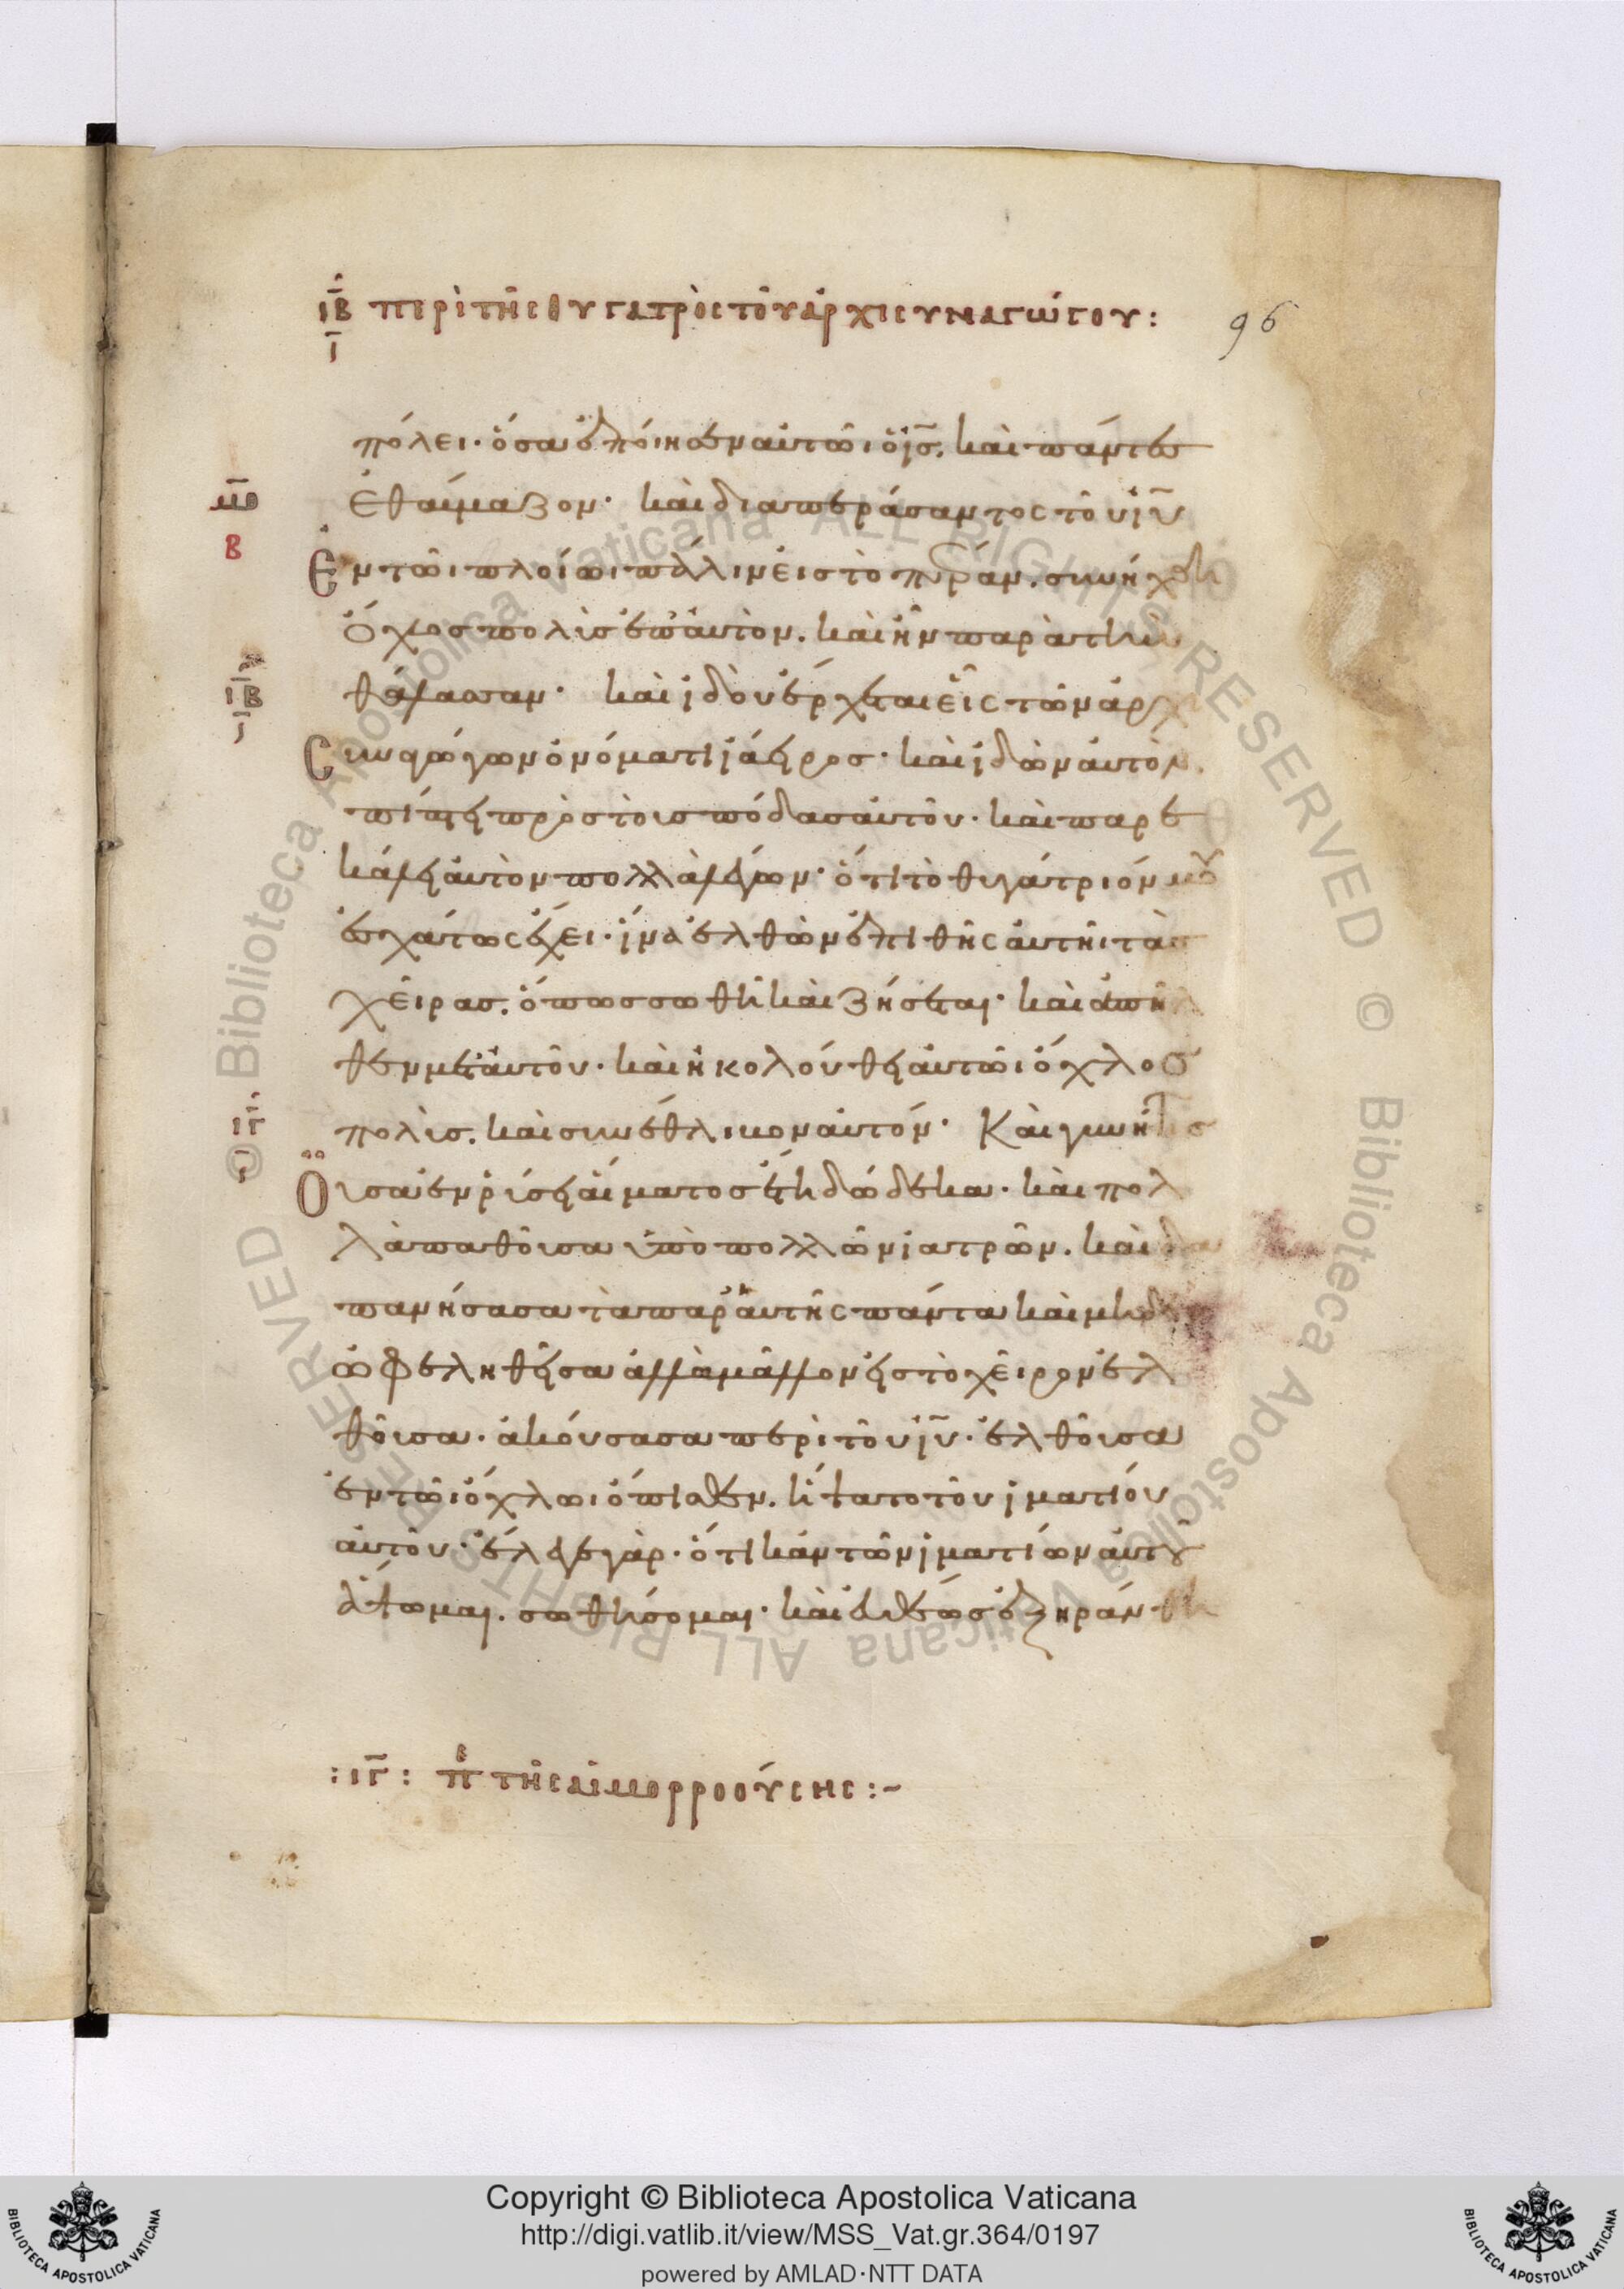 ΙΒ περὶ τῆς θυγατρὸς τοῦ ἀρχισυναγώγου: 96
Ι
πόλει· ὅσα ἐποίησεν αὐτῶι ὁ ις. καὶ πάντες
ἐθαύμαζον· καὶ διαπεράσαντος τοῦ ιυ
Β
Ἐν τῶι πλοίωι πάλιν εἰς τὸ πέραν. συνήχθη
ὄχλος πολὺς ἐπ' αὐτον. καὶ ἦν παρὰ τὴν
ΙΒ
Ι
θάλασσαν· καὶ ἰδοὺ ἔρχεται εἷς τῶν ἀρχι
Συναγώγων ὀνόματι ἰάειρος· καὶ ἰδὼν αὐτὸν.
πίπτει πρὸς τοὺς πόδας αὐτοῦ· καὶ παρε
κάλει αὐτὸν πολλὰ λέγων· ὅτι τὸ θυγάτριόν μου
ἐσχάτως ἔχει· ἵνα ἐλθὼν ἐπιθῆς αὐτῆι τὰς
χεῖρας. ὅπως σωθῆ καὶ ζήσεται· καὶ ἀπῆλ
θεν μετ' αὐτοῦ· καὶ ἠκολούθει αὐτῶι ὄχλος
ΙΓ
πολὺς. καὶ συνέθλιβον αὐτόν· Καὶ γυνή τις
Οὖσα ἐν ῥύσει αἵματος ἔτη δώδεκα· καὶ πολ
λὰ παθοῦσα ὑπὸ πολλῶν ἰατρῶν. καὶ δα
πανήσασα τὰ παρ' αὐτῆς πάντα καὶ μηδὲν
ὠφεληθεῖσα ἀλλὰ μᾶλλον εἰς τὸ χεῖρον ἐλ
θοῦσα· ἀκούσασα περὶ τοῦ ιυ· ἐλθοῦσα
ἐν τῶι ὄχλωι ὄπισθεν. ἥψατο τοῦ ἱματίου
αὐτοῦ· ἔλεγε γὰρ· ὅτι κἂν τῶν ἱματίων αὐτοῦ
ἅψωμαι. σωθήσομαι· καὶ εὐθέως ἐξηράνθη
:ΙΓ: π τῆς αἱμορροούσης:~
Copyright © Biblioteca Apostolica Vaticana
http://digi.vatlib.it/view/MSS_Vat.gr.364/0197
powered by AMLAD·NTT DATA